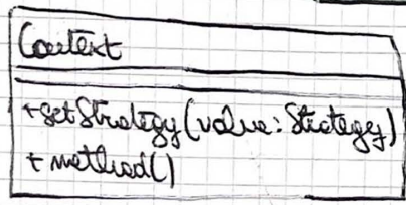 Context
+setStrategy(value: Strategy)
+ method()